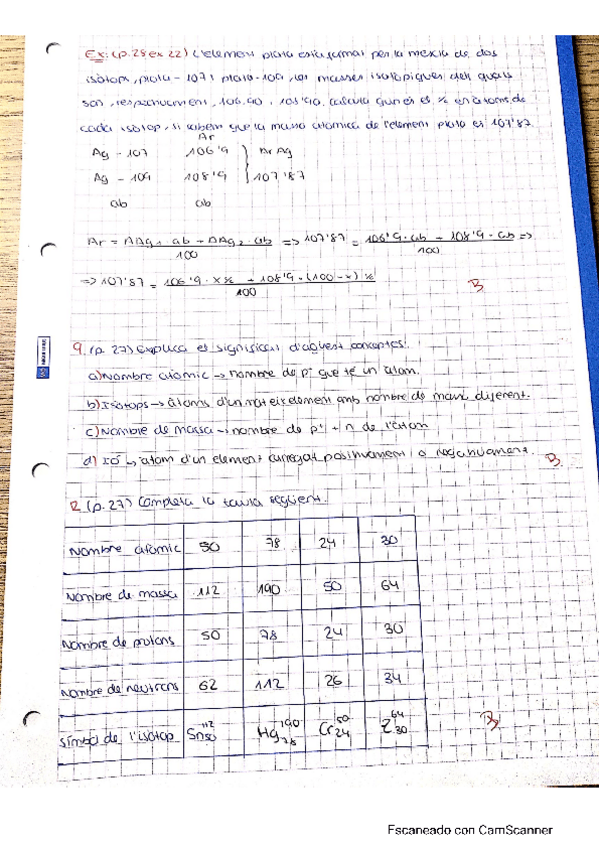 Ex: (p.28 ex 22) L'element plata està format per la mescla de dos
isòtops, plata-107 i plata-109, les masses isotòpiques dels quals
són, respectivament, 106,90 i 108'90. Calcula quin és el % en àtoms de
cada isòtop, si sabem que la massa atòmica de l'element plata és 107'87.
Ar
Ag - 107 106'9 } Ar Ag
Ag - 109 108'9 } 107'87
ab ab
Ar = AAg1 · ab + AAg2 · ab / 100 => 107'87 = 106'9 · ab - 108'9 · ab / 100 =>
=> 107'87 = 106'9 · x% + 108'9 · (100-x) % / 100
B
9. (p. 27) Explica el significat d'aquest conceptes:
a) Nombre atòmic → nombre de p+ que té un àtom.
b) Isòtops → àtoms d'un mateix element amb nombre de massa diferent.
c) Nombre de massa → nombre de p+ + n de l'àtom
d) Ió ↳ àtom d'un element carregat positivament o negativament.
B
12. (p.27) Completa la taula següent.
Nombre atòmic 50 78 24 30
Nombre de massa 112 190 50 64
Nombre de protons 50 78 24 30
Nombre de neutrons 62 112 26 34
Símbol de l'isòtop Sn 112 50 Hg 190 78 Cr 50 24 Z 64 30
B
Escaneado con CamScanner